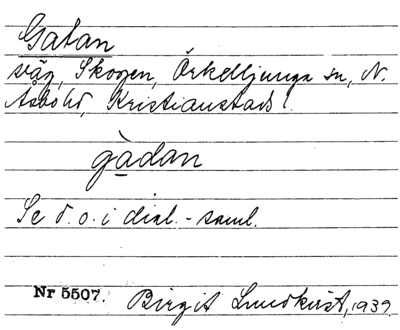 Gatan
väg, Skogen, Örkelljunga sn, N.
Åsbo hd, Kristianstads l.
gàdan
Se d. o. i dial.-saml.
Nr 5507. Birgit Lundkvist, 1939.